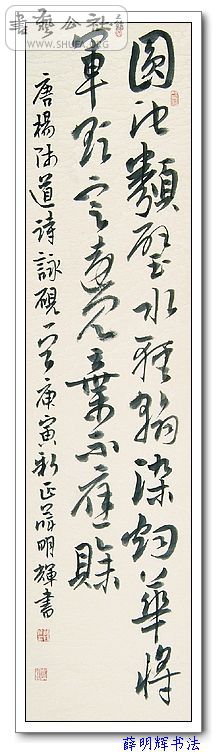 書藝公社
WWW.SHUFA.ORG
圓池類璧水輕翰染烟華將
軍欲定遠見棄不應賒
唐楊師道詩詠硯一首庚寅新正薛明輝書
薛明辉书法